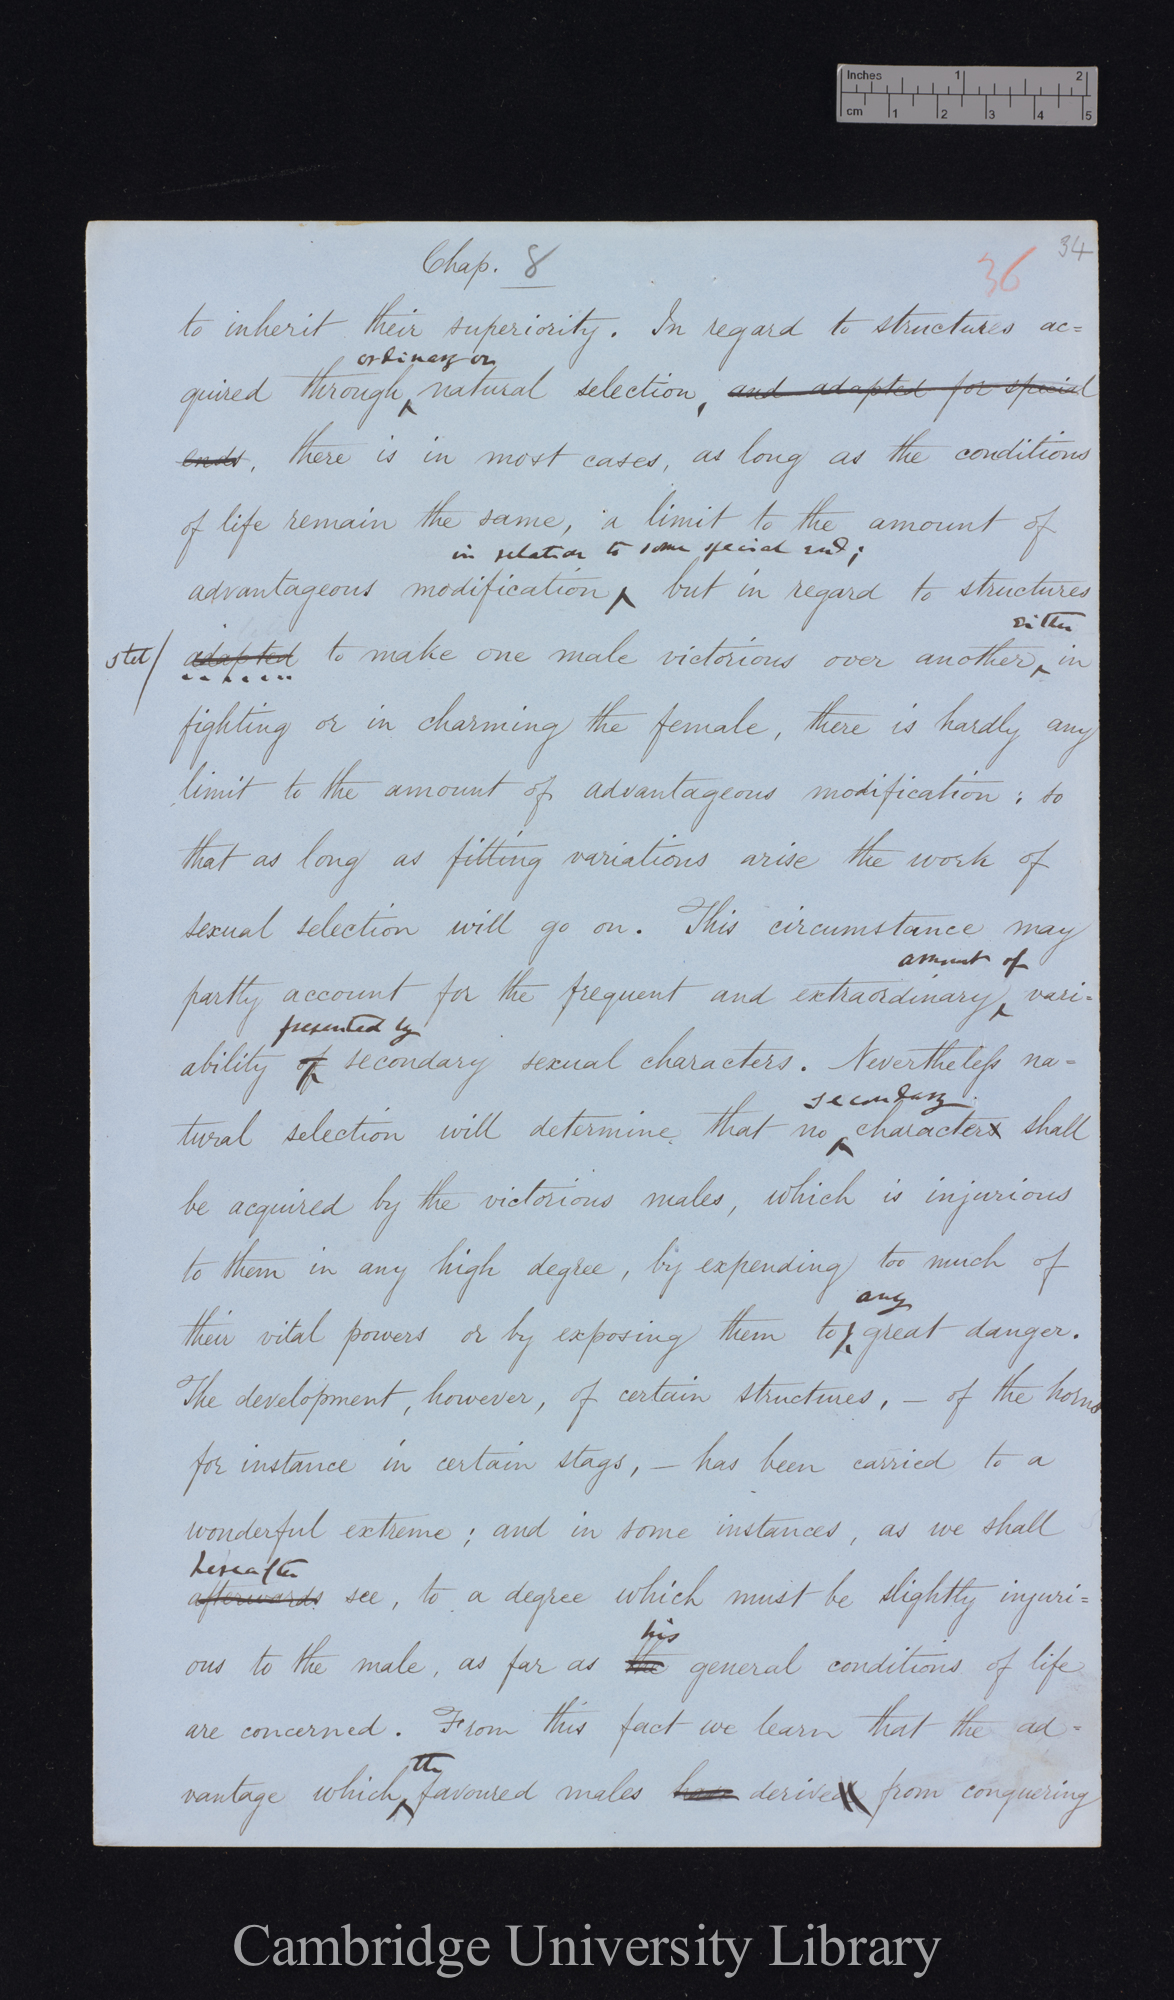 Inches 1 2
cm 1 2 3 4 5
34
Chap. 8 36
to inherit their superiority. In regard to structures ac=
ordinary or
quired through natural selection, and adapted for special
ends, there is in most cases, as long as the conditions
of life remain the same, a limit to the amount of
in relation to some special end;
advantageous modification but in regard to structures
either
stet/ adapted to make one male victorious over another, in
fighting or in charming the female, there is hardly any
limit to the amount of advantageous modification; so
that as long as fitting variations arise the work of
sexual selection will go on. This circumstance may
amount of
partly account for the frequent and extraordinary vari-
presented by
ability of secondary sexual characters. Nevertheless na-
secondary
tural selection will determine that no characters shall
be acquired by the victorious males, which is injurious
to them in any high degree, by expending too much of
any
their vital powers or by exposing them to great danger.
The development, however, of certain structures, — of the horns
for instance in certain stags, — has been carried to a
wonderful extreme; and in some instances, as we shall
hereafter
afterwards see, to a degree which must be slightly injuri=
his
ous to the male, as far as the general conditions of life
are concerned. From this fact we learn that the ad=
the
vantage which favoured males have derived from conquering
Cambridge University Library